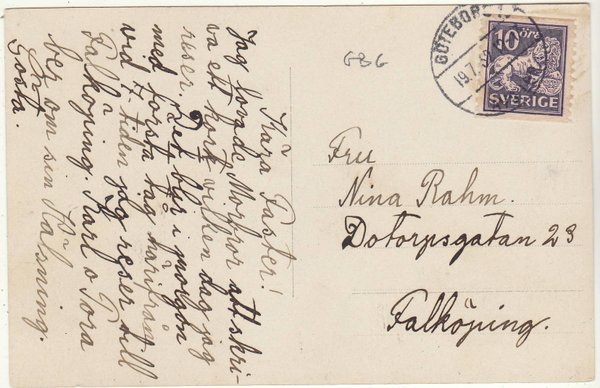 Kära Faster!
Jag lovade Morfror att skri-
va ett kort vilken dag jag
reser. Det blir i morgon
med första tåg härifrån
vid 7 tiden jag reser till
Falköping. Karl o Tora
ber om sin Hälsning.
Gösta.
GBG
GÖTEBORG 1
19.7.
10 ÖRE
SVERIGE
Fru
Nina Rahm.
Dotorpsgatan 23
Falköping.